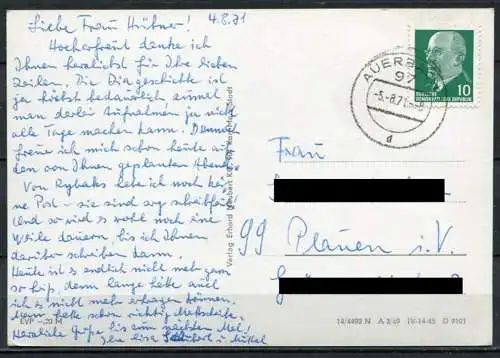 Liebe Frau Hübner! 4.8.71
Hocherfreut danke ich
Ihnen herzlichst für Ihre lieben
Zeilen. Die Diageschichte ist
ja höchst bedauerlich, zumal
man derlei Aufnahmen ja nicht
alle Tage machen kann. Dennoch
freue ich mich schon heute auf
den von Ihnen geplanten Abend.
Von Rybaks habe ich noch keine
Post – sie sind arg schreibfaul!
Und so wird es wohl noch eine
Weile dauern, bis ich Ihnen
darüber schreiben kann.
Heute ist es endlich nicht mehr ganz
so heiß, denn lange hätte auch
ich es nicht mehr ertragen können.
Man hatte schon richtig
Herzliche Grüße bis zum nächsten Mal!
Ihre u. Muttel
EVP –,20 M
Verlag Erhard Neubert KG, 901 Karl-Marx-Stadt
AUERB
97
-5.-8.71.-8
d
DEUTSCHE
DEMOKRATISCHE REPUBLIK
10
Frau
99 Plauen i.V.
14/4492 N A 3/69 IV-14-45 D 9101